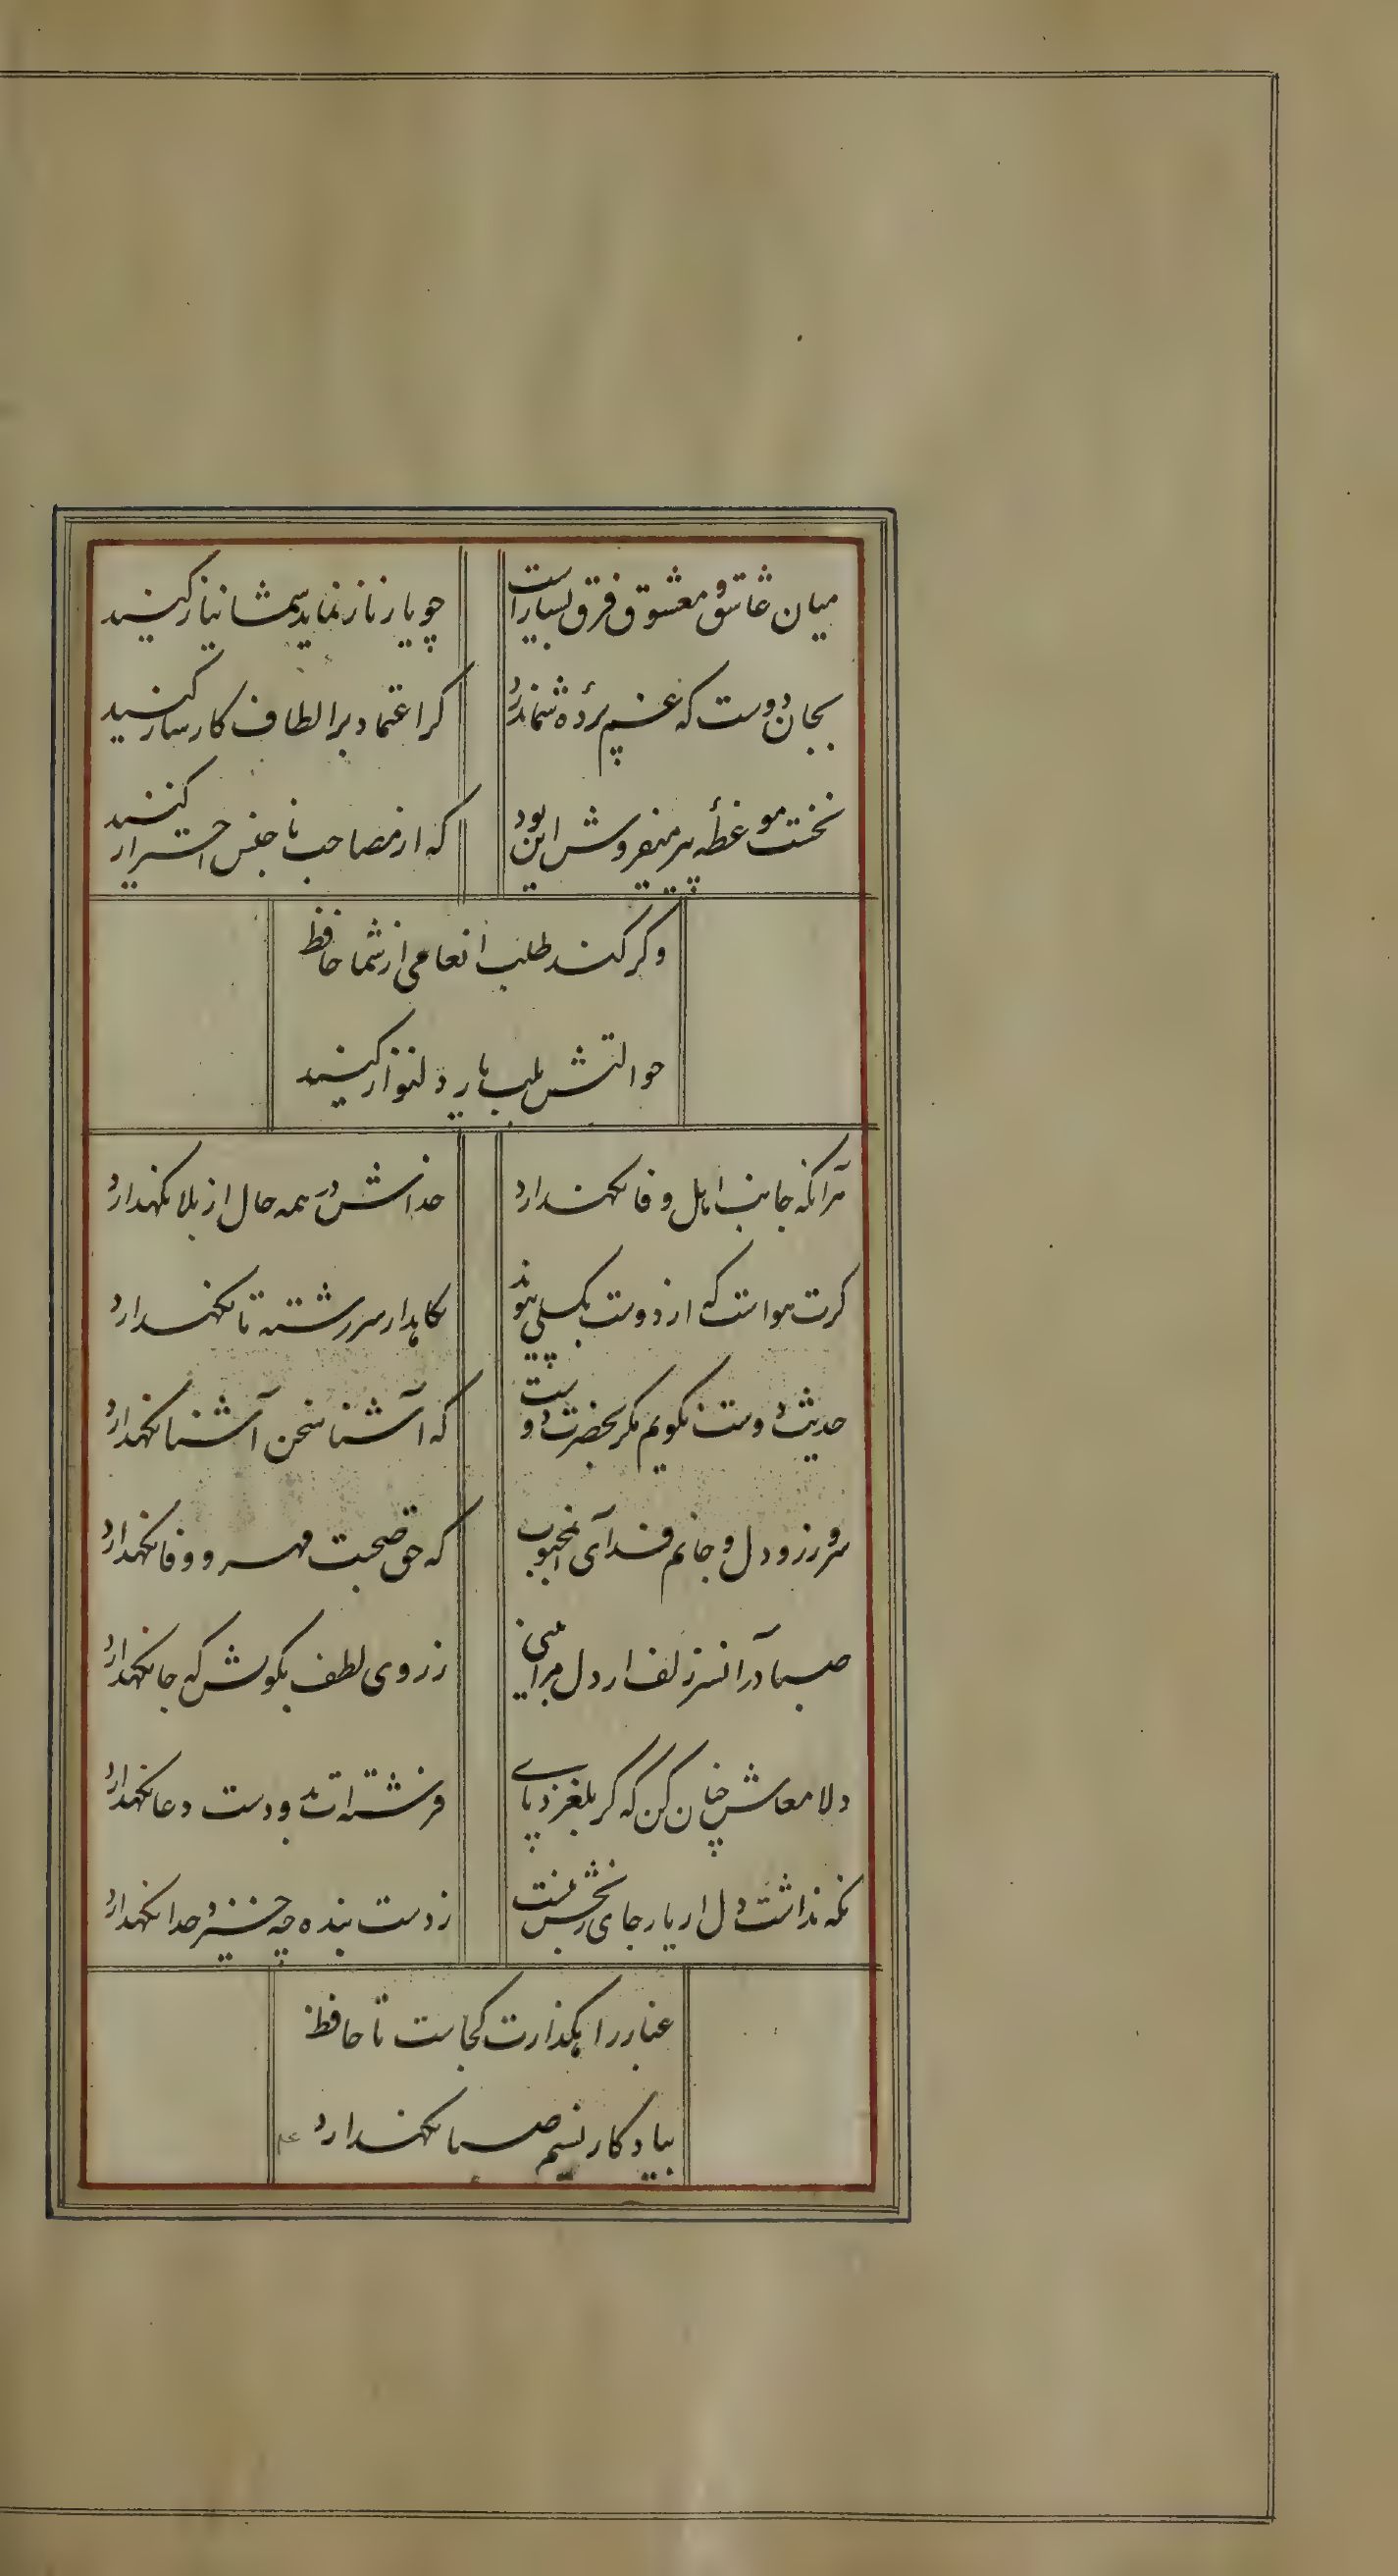 میان عاشق و معشوق فرق بسیار است
چو یار ناز نماید شما نیاز کنید
بجان دوست که غم پردهٔ شما ندرد
کر اعتماد بر الطاف کارساز کنید
نخست موعظهٔ پیر میفروش این بود
که از مصاحب ناجنس احتراز کنید
وکر کند طلب انعامی از شما حافظ
حوالتش بلب یار دلنواز کنید
هر آنکه جانب اهل وفا نکهدارد
خداش در همه حال از بلا نکهدارد
کرت هواست که از دوست نکسلی پیوند
نکاهدار سر رشته تا نکهدارد
حدیث دوست نکویم مکر بحضرت دوست
که آشنا سخن آشنا نکهدارد
سر و زر و دل و جانم فدای آن محبوب
که حق صحبت مهر و وفا نکهدارد
صبا در آن سر زلف ار دل مرا بینی
ز روی لطف بکوش که جا نکهدارد
دلا معاش چنان کن که کر بلغزد پای
فرشته‌ات بدو دست دعا نکهدارد
نکه نداشت دل ار یار جای رنجش نیست
ز دست بنده چه خیزد خدا نکهدارد
غبار راهکذارت کجاست تا حافظ
بیادکار نسیم صبا نکهدارد